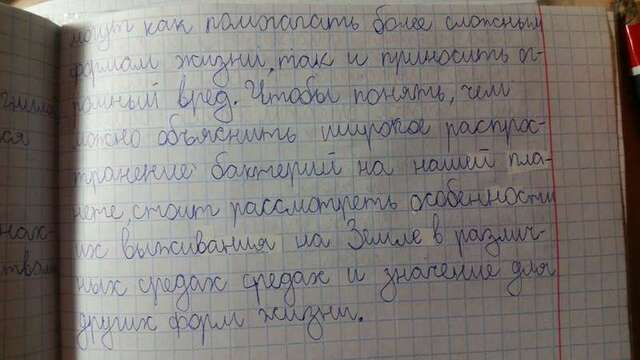 могут как помогать более сложным
формам жизни, так и приносить ог-
ромный вред. Чтобы понять, чем
можно объяснить широкое распрос-
транение бактерий на нашей пла-
нете, стоит рассмотреть особенности
их выживания на Земле в различ-
ных средах средах и значение для
других форм жизни.